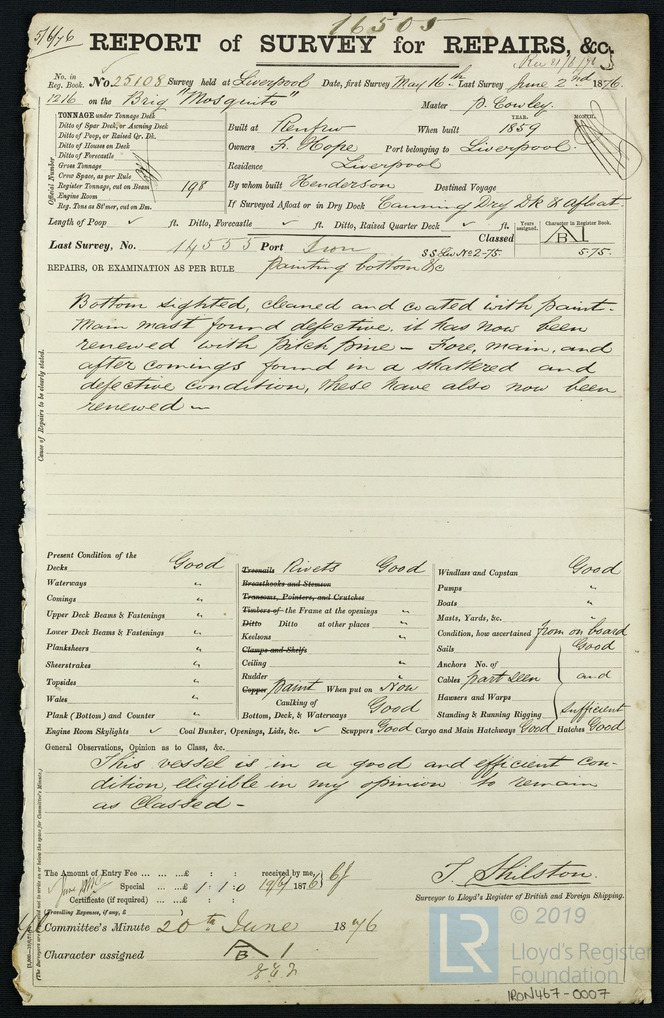 5/6/76
16505
REPORT of SURVEY for REPAIRS, &c.
No. in Reg. Book. No. 25108 Survey held at Liverpool Date, first Survey May 16th Last Survey June 2nd 1876
1216 on the Brig "Mosquito" Master P. Cowley
TONNAGE under Tonnage Deck
Ditto of Spar Deck, or Awning Deck
Ditto of Poop, or Raised Qr. Dk.
Ditto of Houses on Deck
Ditto of Forecastle
Gross Tonnage
Crew Space, as per Rule
Register Tonnage, cut on Beam 198
Engine Room
Reg. Tons as St'mer, cut on Bm.
Official Number
YEAR. MONTH.
Built at Renfrew When built 1859
Owners Fr. Hope Port belonging to Liverpool
Residence Liverpool
By whom built Henderson Destined Voyage
If Surveyed Afloat or in Dry Dock Canning Dry Dk & Afloat
Length of Poop ✓ ft. Ditto, Forecastle ✓ ft. Ditto, Raised Quarter Deck ✓ ft.
Years assigned. Character in Register Book.
Last Survey, No. 14555 Port Iron Classed A B 1
S S Liv No 2-75 5.75.
REPAIRS, OR EXAMINATION AS PER RULE painting bottom &c
Bottom sighted, cleaned and coated with paint.
Main mast found defective, it has now been
renewed with Pitch pine — Fore, main, and
after comings found in a shattered and
defective condition, these have also now been
renewed —
Cause of Repairs to be clearly stated.
Present Condition of the
Decks Good
Waterways "
Comings "
Upper Deck Beams & Fastenings "
Lower Deck Beams & Fastenings "
Planksheers "
Sheerstrakes "
Topsides "
Wales "
Plank (Bottom) and Counter "
Treenails Rivets Good
Breasthooks and Stemson
Transoms, Pointers, and Crutches
Timbers of the Frame at the openings "
Ditto Ditto at other places "
Keelsons "
Clamps and Shelfs
Ceiling "
Rudder "
Copper paint When put on Now
Caulking of
Bottom, Deck, & Waterways Good
Windlass and Capstan Good
Pumps "
Boats "
Masts, Yards, &c. "
Condition, how ascertained from on board
Sails Good
Anchors No. of
Cables part seen and
Hawsers and Warps
Standing & Running Rigging Sufficient
Engine Room Skylights ✓ Coal Bunker, Openings, Lids, &c. ✓ Scuppers Good Cargo and Main Hatchways Good Hatches Good
General Observations, Opinion as to Class, &c.
This vessel is in a good and efficient con-
dition, eligible in my opinion to remain
as Classed —
The Amount of Entry Fee ... ... ...£ : : received by me,
Special ... ...£ 1 : 1 : 0 19/6/1876
Certificate (if required) ... ...£ : :
(Travelling Expenses, if any, £
T. Shilston.
Surveyor to Lloyd's Register of British and Foreign Shipping.
Committee's Minute 20th June 1876
Character assigned A B 1
© 2019
LR
Lloyd's Register
Foundation
IRON467-0007